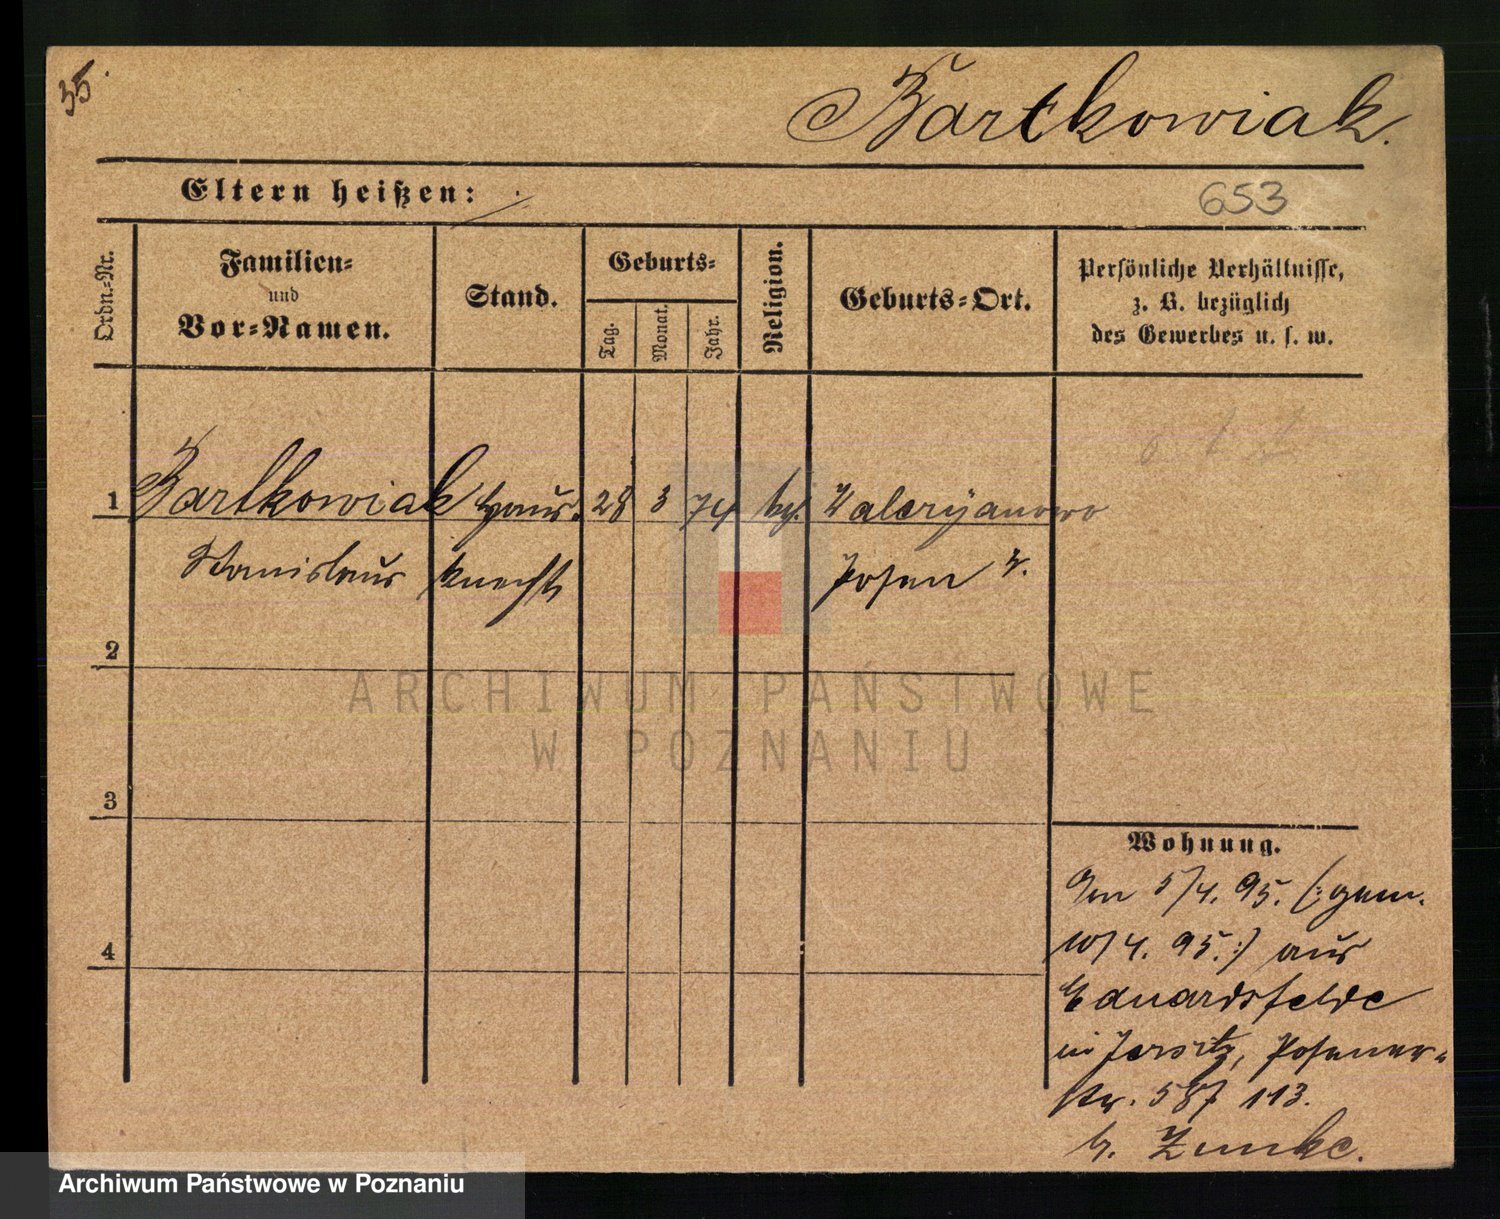 35.
Bartkowiak.
Eltern heißen:
653
Ordn.-Nr.
Familien-
und
Vor-Namen.
Stand.
Geburts-
Tag.
Monat.
Jahr.
Religion.
Geburts-Ort.
Persönliche Verhältnisse,
z. B. bezüglich
des Gewerbes u. s. w.
1 Bartkowiak Haus- 28 3 74 kg. Waleryanowo
Stanislaus knecht Posen W.
2
3
4
Wohnung.
Am 5/4. 95. (: gem.
10/4. 95. :) aus
Eduardsfelde
in Jersitz, Posener-
str. 587 113.
b. Zunke.
ARCHIWUM PAŃSTWOWE
W POZNANIU
Archiwum Państwowe w Poznaniu